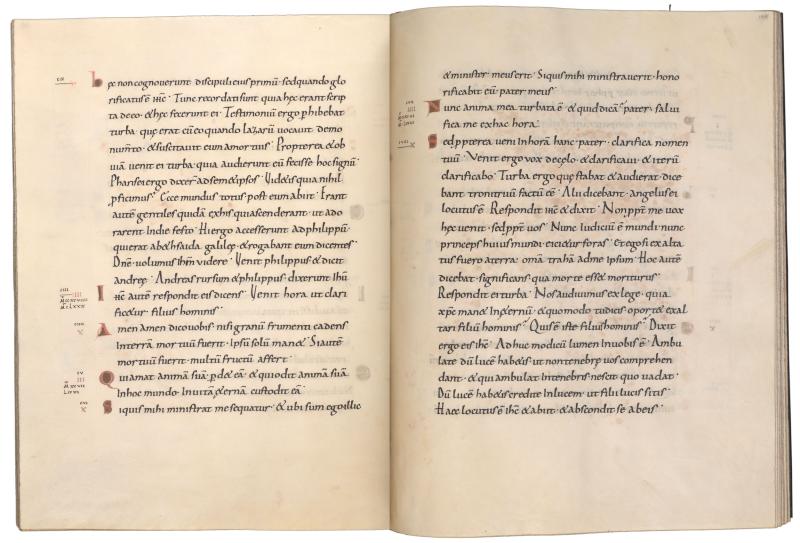 hęc non cognoverunt discipuli eius primū · sed quando glo
rificatus ē ihc̄ · Tunc recordati sunt quia hęc erant scrip
ta de eo · & hęc fecerunt ei · Testimoniū ergo phibebat
turba · quę erat cū eo quando lazarū vocavit de mo
num̄to · & suscitavit eum a mortuis · Propterea & ob
viā venit ei turba · quia audierunt eū fecisse hoc signū ·
Pharisei ergo dixer̄ ad sem& ipsos · Vid&is quia nihil
pficimus · Ecce mundus totus post eum abiit · Erant
autē gentiles quidā ex his qui ascenderant · ut ado
rarent in die festo · Hi ergo accesserunt ad philippū ·
qui erat a b&hsaida galileę · & rogabant eum dicentes ·
Dn̄e · volumus ihm̄ videre · Venit philippus & dicit
andreę · Andreas rursum & philippus · dixerunt ihū ·
ihc̄ autē respondit eis dicens · Venit hora ut clari
fic&ur · filius hominis ·
Amen amen dico vobis · nisi granū frumenti cadens
in terrā · mortuū fuerit · ipsū solū man& · Si autē
mortuū fuerit · multū fructū affert ·
Qui amat animā suā · p̄d& eā · & qui odit animā suā
in hoc mundo · in vitā &ernā custodit eā ·
Si quis mihi ministrat me sequatur · & ubi sum ego illic
& minister meus erit · Si quis mihi ministraverit · hono
rificabit eū · pater meus ·
Nunc anima mea turbata ē · & quid dicā · pater · salvi
fica me ex hac hora ·
Sed ppterea veni in horā hanc · pater · clarifica nomen
tuū · Venit ergo vox de cęlo · & clarificavi · & iterū
clarificabo · Turba ergo quę stabat & audierat · dice
bant · tronitruū factū eē · Alii dicebant · angelus ei
locutus ē · Respondit ihc̄ & dixit · Non ppt̄ me vox
hęc venit · sed ppt̄ vos · Nunc iudiciū ē mundi · nunc
princeps huius mundi · eici&ur foras · Et ego si exalta
tus fuero a terra · omā traham ad me ipsum · Hoc autē
dicebat · significans · qua morte ess& moriturus ·
Respondit ei turba · Nos audivimus ex lege · quia
xpc̄ man& in &ernū · & quomodo tu dicis · oport& exal
tari filiū hominis · Quis ē iste filius hominis · Dixit
ergo eis ihc̄ · Adhuc modicū lumen in vobis ē · Ambu
late dū lucē hab&is · ut non tenebrę vos comprehen
dant · & qui ambulat in tenebris nescit quo vadat ·
Dū lucē hab&is credite in lucem · ut filii lucis sitis ·
Haec locutus ē ihc̄ & abiit · & abscondit se ab eis ·